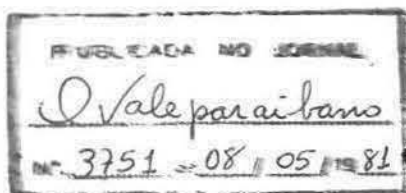 PUBLICADA NO JORNAL
O Valeparaibano
Nº 3751 - 08 / 05 / 1981